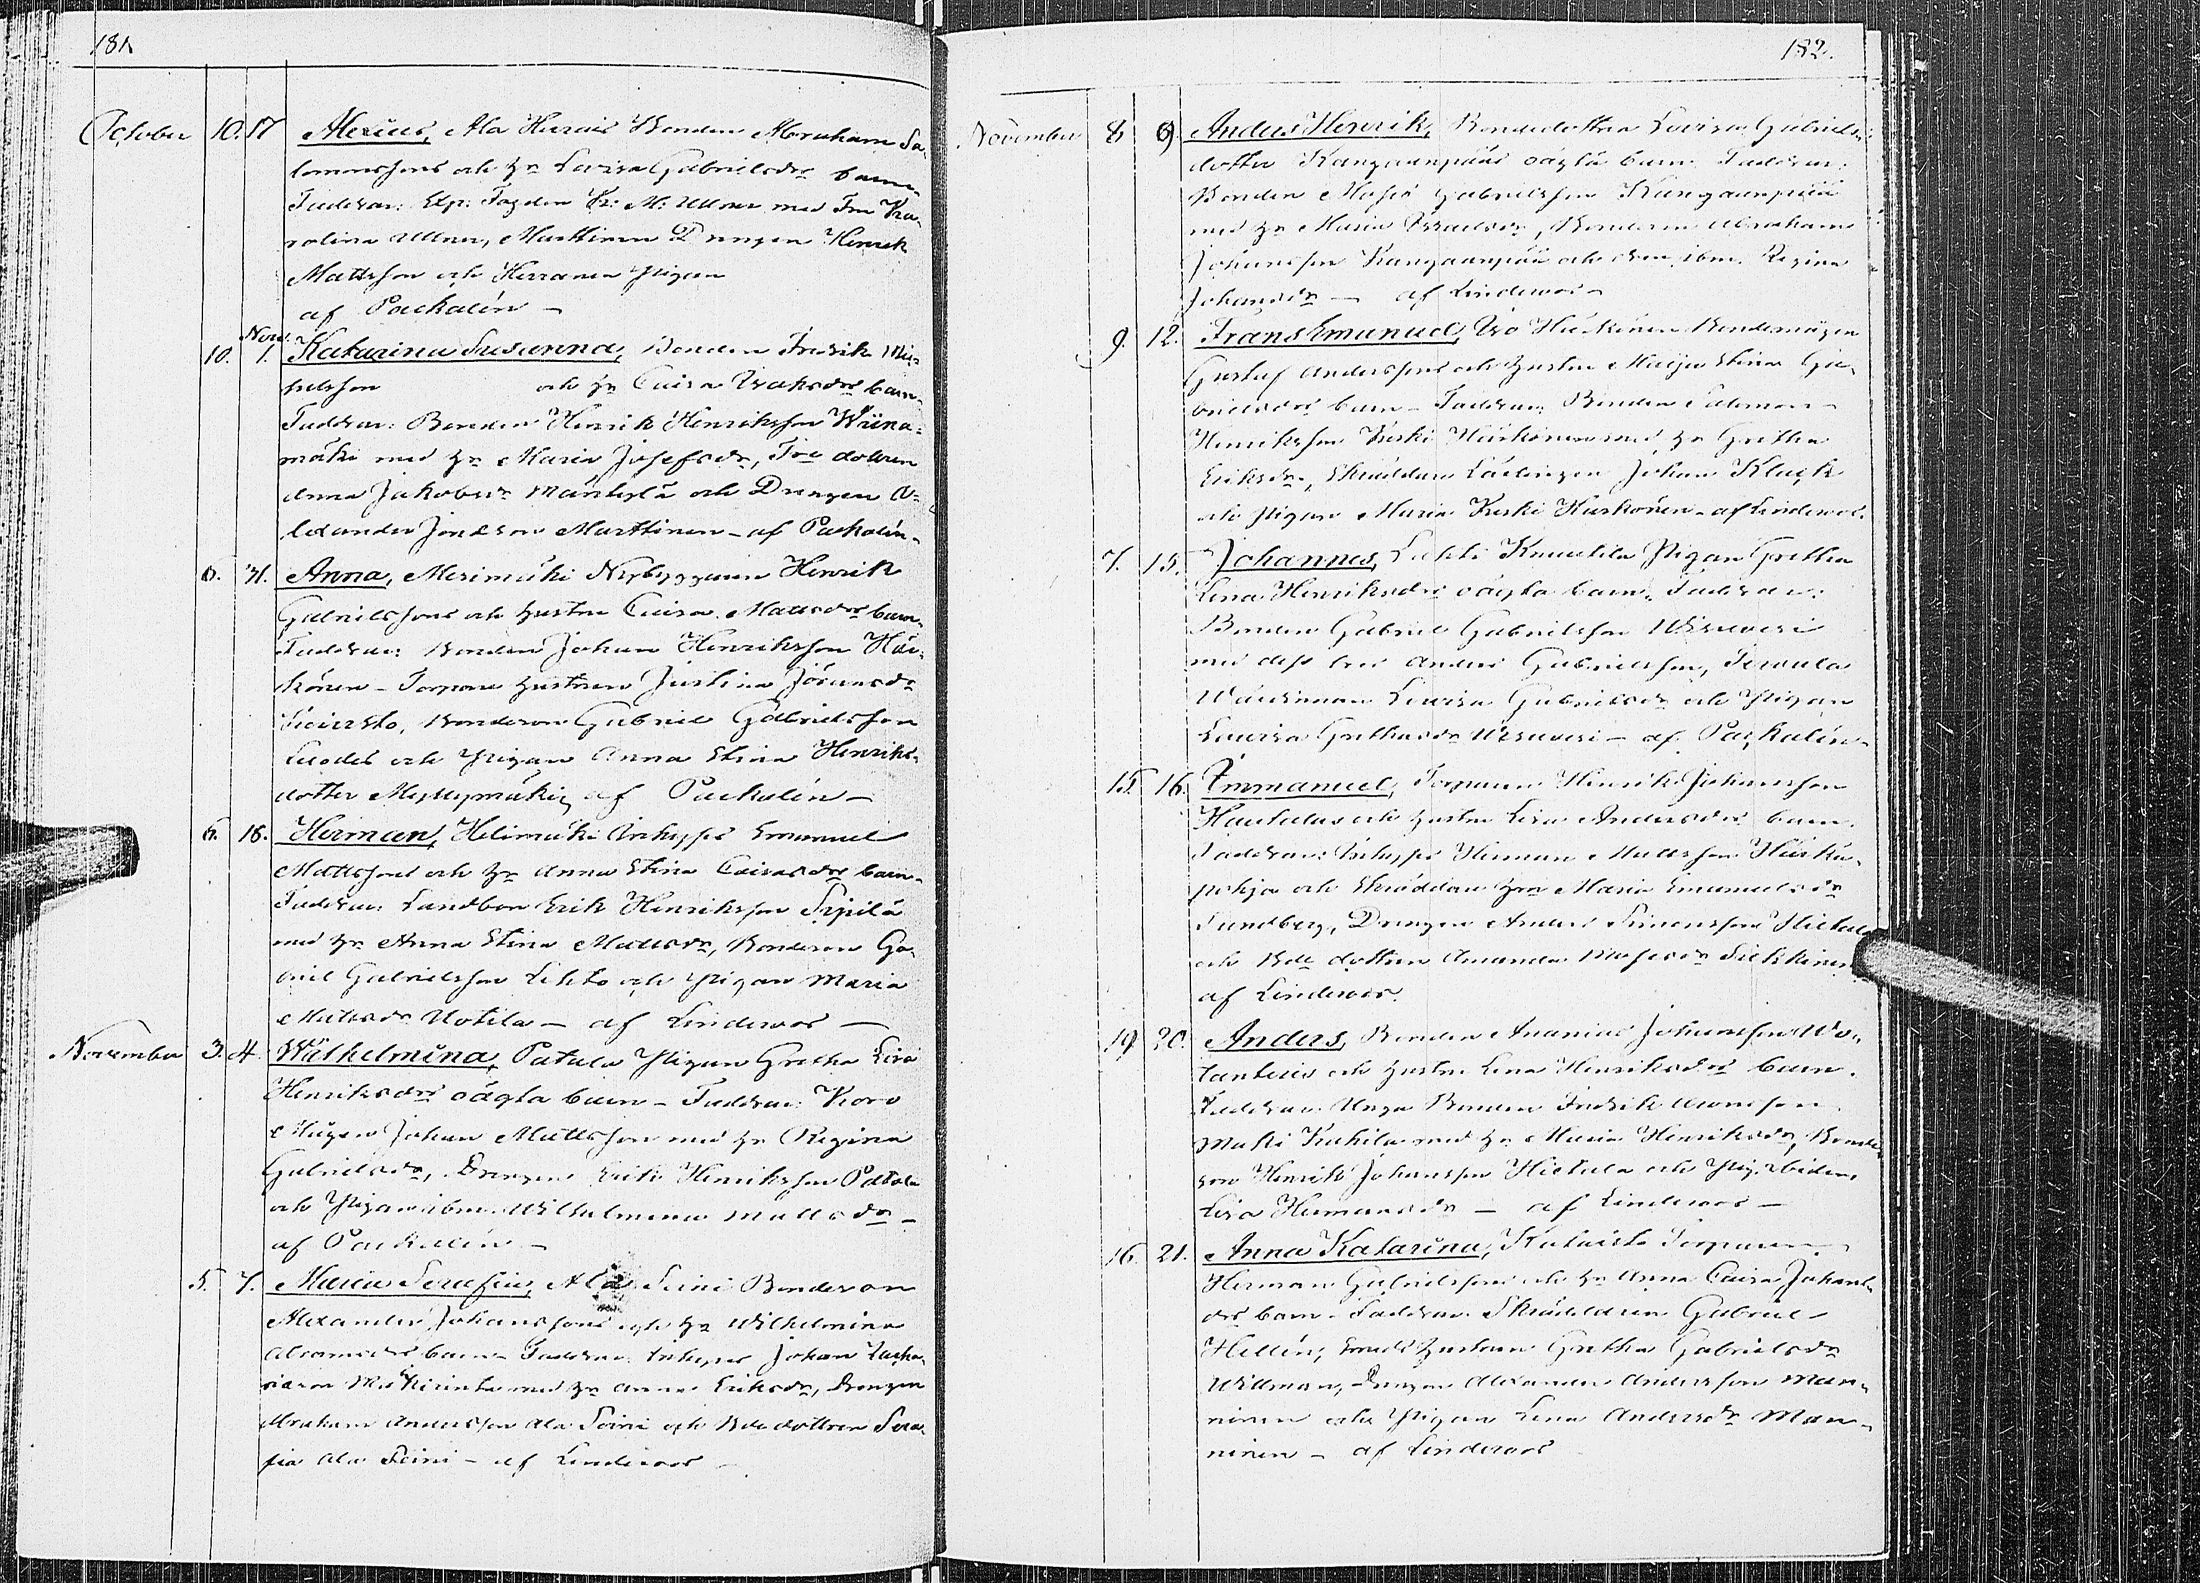 181.
October 10. 17 Alexius, Ala Hurais Bonden Abraham Sa-
lomonssons och h:u Lovisa Gabrielsdrs barn.
Faddrar: Exp: Fogden Fr: M: Ullner med Fru Ka-
rolina Ullner, Marttinen Drengen Henrik
Mattsson och Herranen Pigan
af Packalén —
10. Nov. 1. Katarina Susanna, Bonden Fredrik Mi-
kelsson och h:u Caisa Isaksdrs barn.
Faddrar: Bonden Henrik Henriksson Wiina-
mäki med h:u Maria Josefsdr, Torp dottren
Anna Jakobsdr Mäntylä och Drengen A-
lexander Jonasson Marttinen - af Packalén.
6. 31. Anna, Merimäki Nybyggaren Henrik
Gabrielssons och hustru Caisa Mattsdrs barn.
Faddrar: Bonden Johan Henriksson Här-
könen - Torpare hustrun Justina Göransdr
Bondeson Gabriel Gabrielsson
Luodes och Pigan Anna Stina Henriks-
dotter Myllymäki, af Packalén —
6. 18. Herman, Helimäki Inhyses Emanuel
Mattssons och h:u Anna Stina Caisasdrs barn.
Faddrar: Landbon Erik Henriksson Sipilä
med h:u Anna Stina Mattsdr, Bondeson Ga-
briel Gabrielsson Lehto och Pigan Maria
Mattsdr Uotila — af Linderoos —
November 3. 4. Wilhelmina, Patala Pigan Gretha Lisa
Henriksdrs oägta barn - Faddrar: Koro
Mågen Johan Mattsson med h:u Regina
Gabrielsdr, Drengen Erik Henriksson Patala
och Pigan ibm Wilhelmina Mattsdr —
af Packalén —
5. 7. Maria Serafia, Ala Soini Bondeson
Alexander Johanssons och h:u Wilhelmina
Abramsdrs barn - Faddrar: Inhyses Johan Zacha-
riasson med h:u Anna Eriksdr, Drengen
Abraham Andersson Ala Soini och Bde dottren Sera-
fia Ala Soini - af Linderoos —
182.
November 8. 9. Anders Henrik, Bondedottren Lovisa Gabriels-
dotter Kangaanpääs oägta barn. Faddrar:
Bonden Moses Gabrielsson Kangaanpää
med h:u Maria Israelsdr, Bondeson Abraham
Johansson Kangaanpää och ibm. Regina
Johansdr — af Linderoos
9. 12. Frans Emanuel, Yso Härkönen Bondemågen
Gustaf Anderssons och hustru Maija Stina Ga-
brielsdrs barn - Faddrar: Bonden Salomon
Henriksson Keski Härkönen med h:u Gretha
Eriksdr, Skräddare Lärlingen Johan Kluck
och Pigan Maria Keski Härkönen - af Linderoos.
7. 15. Johannes, Lahti Knuutila Pigan Gretha
Lena Henriksdrs oägta barn. Faddrar:
Bonden Gabriel Gabrielsson
med dess bror Anders Gabrielsson,
Lovisa Gabrielsdr och Pigan
Lovisa Grethasdr — af Packalén.
15. 16. Emmanuel, Torparen Henrik Johansson
Hautalas och hustru Lisa Andersdrs barn.
Faddrar: Inhyses Herman Mattsson Härkä-
pohja och Skräddare h:un Maria Emanuelsdr
Sundberg, Drengen Anders Simonsson Hietala
och Bde dottren Amanda Mosesdr
af Linderoos.
19. 20. Anders, Bonden Ananias Johansson Wo-
lantens och hustru Lena Henriksdrs barn.
Faddrar: Unga Bonden Fredrik
Mäki Kukila med h:u Maria Henriksdr, Bonde-
son Henrik Johansson Hietala och Pig: ibidem
Lisa Hermansdr — af Linderoos —
16. 21. Anna Katarina, Torparen
Herman Gabrielssons och h:u Anna Caisa Johans-
drs barn. Faddrar: Skräddaren Gabriel
Hellén, hustrun Gretha Gabrielsdr
Willman, Drengen Alexander Andersson Man-
ninen och Pigan Lena Andersdr Man-
ninen — af Linderoos